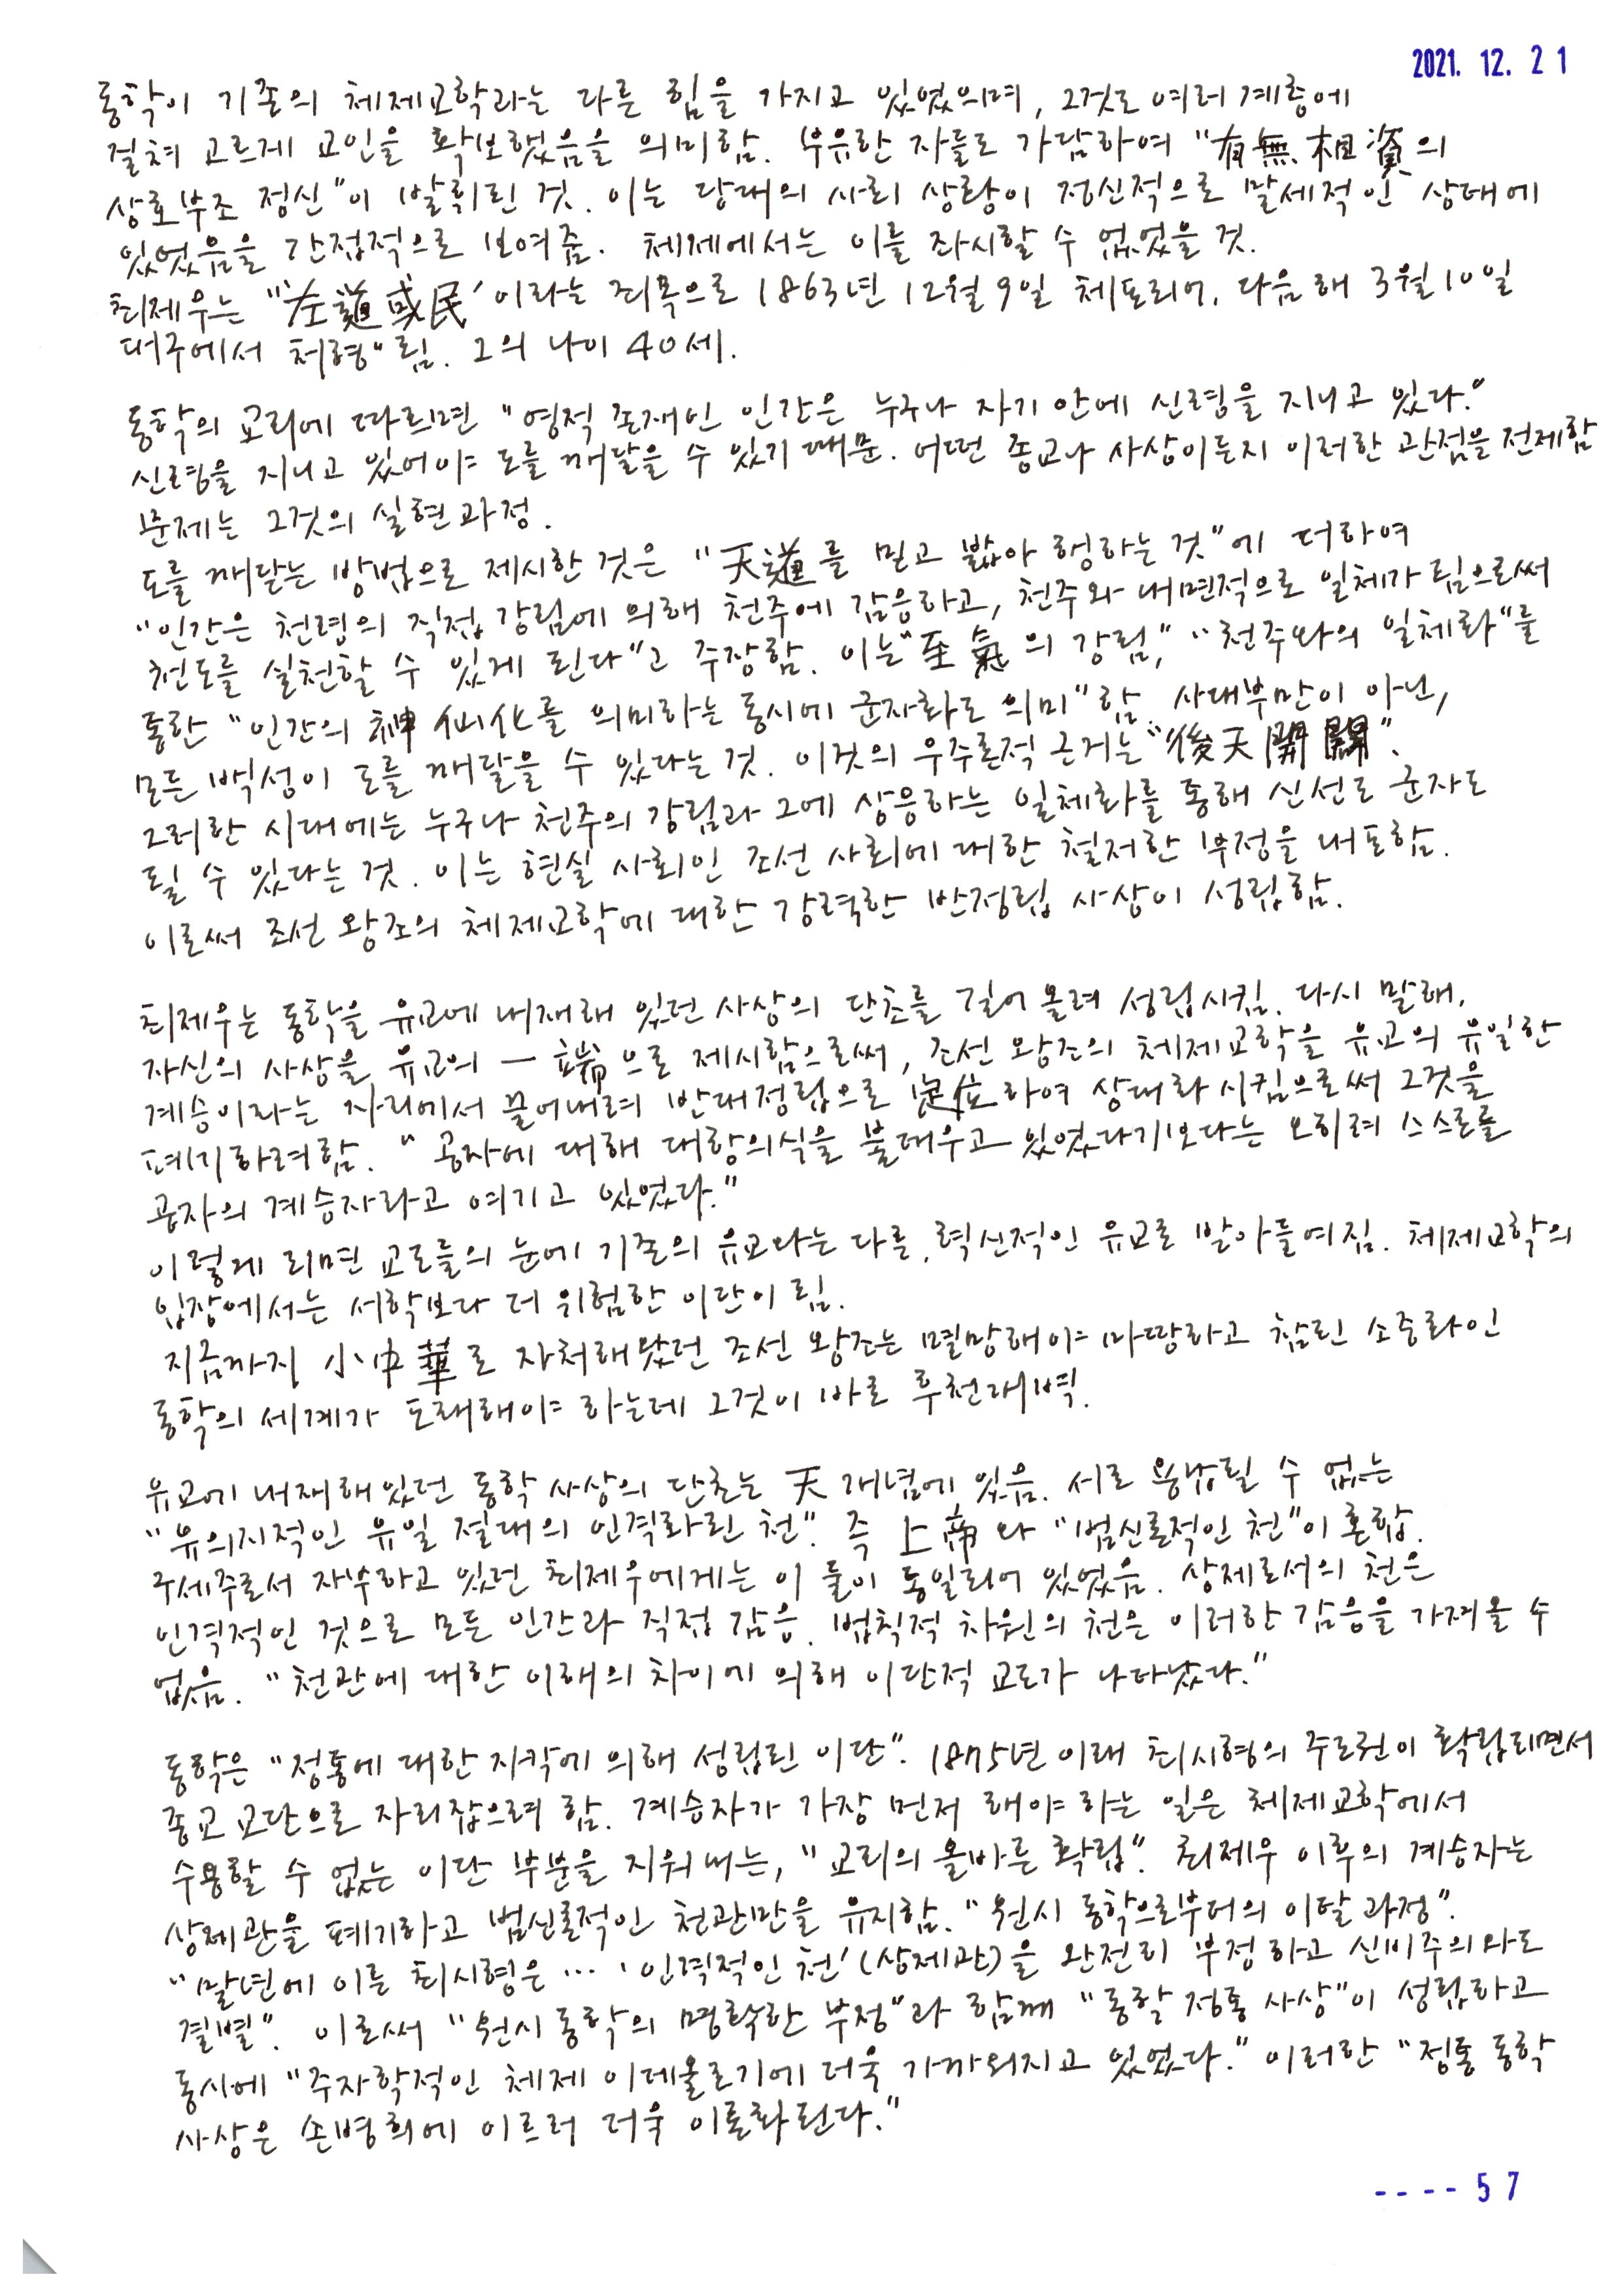 2021. 12. 21
동학이 기존의 체제교학과는 다른 힘을 가지고 있었으며, 그것도 여러 계층에
걸쳐 고르게 교인을 확보했음을 의미함. 부유한 자들도 가담하여 "有無相資의
상호부조 정신"이 발휘된 것. 이는 당대의 사회 상황이 정신적으로 '말세적인' 상태에
있었음을 간접적으로 보여줌. 체제에서는 이를 좌시할 수 없었을 것.
최제우는 "'左道惑民'이라는 죄목으로 1863년 12월 9일 체포되어, 다음 해 3월 10일
대구에서 처형"됨. 그의 나이 40세.
동학의 교리에 따르면 "영적 존재인 인간은 누구나 자기 안에 신령을 지니고 있다."
신령을 지니고 있어야 도를 깨달을 수 있기 때문. 어떤 종교나 사상이든지 이러한 관점을 전제함
문제는 그것의 실현과정.
도를 깨닫는 방법으로 제시한 것은 "天道를 믿고 밟아 행하는 것"에 더하여
"인간은 천령의 직접 강림에 의해 천주에 감응하고, 천주와 내면적으로 일체가 됨으로써
천도를 실천할 수 있게 된다"고 주장함. 이는 "至氣의 강림," "천주와의 일체화"를
통한 "인간의 神仙化를 의미하는 동시에 군자화도 의미"함. 사대부만이 아닌,
모든 백성이 도를 깨달을 수 있다는 것. 이것의 우주론적 근거는 "後天開闢".
그러한 시대에는 누구나 천주의 강림과 그에 상응하는 일체화를 통해 신선도 군자도
될 수 있다는 것. 이는 현실 사회인 조선 사회에 대한 철저한 부정을 내포함.
이로써 조선 왕조의 체제교학에 대한 강력한 반정립 사상이 성립함.
최제우는 동학을 유교에 내재해 있던 사상의 단초를 길어 올려 성립시킴. 다시 말해,
자신의 사상을 유교의 一端으로 제시함으로써, 조선 왕조의 체제교학을 유교의 유일한
계승이라는 자리에서 끌어내려 반대정립으로 定位하여 상대화시킴으로써 그것을
폐기하려함. "공자에 대해 대항의식을 불태우고 있었다기보다는 오히려 스스로를
공자의 계승자라고 여기고 있었다."
이렇게 되면 교도들의 눈에 기존의 유교와는 다른, 혁신적인 유교로 받아들여짐. 체제교학의
입장에서는 서학보다 더 위험한 이단이 됨.
지금까지 小中華로 자처해왔던 조선 왕조는 멸망해야 마땅하고 참된 소중화인
동학의 세계가 도래해야 하는데 그것이 바로 후천개벽.
유교에 내재해있던 동학 사상의 단초는 天 개념에 있음. 서로 용납될 수 없는
"유의지적인 유일 절대의 인격화된 천". 즉 上帝와 "범신론적인 천"이 혼합.
구세주로서 자부하고 있던 최제우에게는 이 둘이 동일되어 있었음. 상제로서의 천은
인격적인 것으로 모든 인간과 직접 감응. 법칙적 차원의 천은 이러한 감응을 가져올 수
없음. "천관에 대한 이해의 차이에 의해 이단적 교도가 나타났다."
동학은 "정통에 대한 자각에 의해 성립된 이단". 1875년 이래 최시형의 주도권이 확립되면서
종교 교단으로 자리잡으려 함. 계승자가 가장 먼저 해야 하는 일은 체제교학에서
수용할 수 없는 이단 부분을 지워내는, "교리의 올바른 확립". 최제우 이후의 계승자는
상제관을 폐기하고 범신론적인 천관만을 유지함. "원시 동학으로부터의 이탈 과정".
"말년에 이른 최시형은 … '인격적인 천'(상제관)을 완전히 부정하고 신비주의와도
결별". 이로써 "원시 동학의 명확한 부정"과 함께 "동학 정통 사상"이 성립하고
동시에 "주자학적인 체제 이데올로기에 더욱 가까워지고 있었다." 이러한 "정통 동학
사상은 손병희에 이르러 더욱 이론화된다."
---- 57